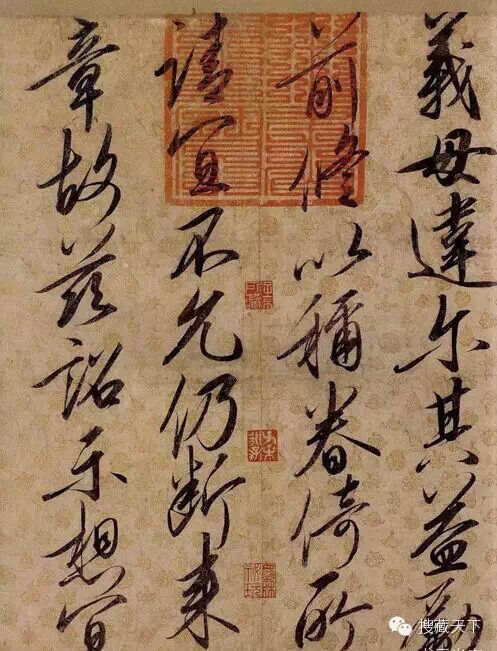 義毋違尔其益勵
前修以稱眷倚所
請宜不允仍断来
章故茲詔示想宜
搜藏天下